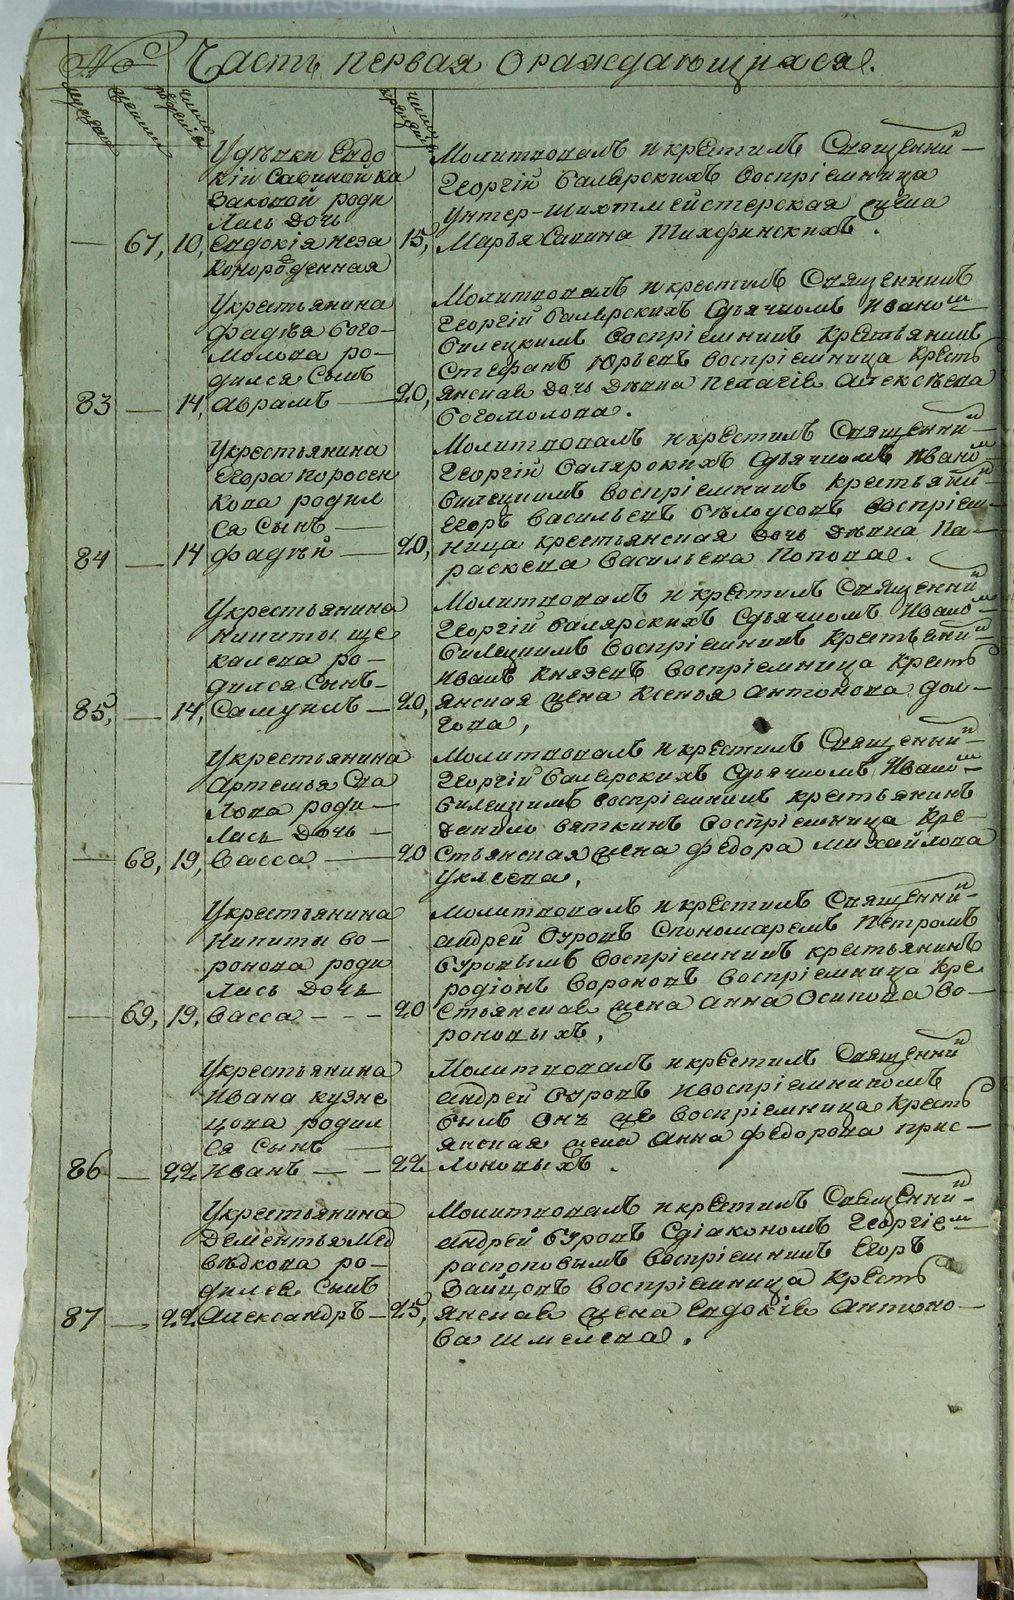 № Часть первая ораждающихся.
мужеск женск число рождения число крещения
У дѣвки Евдо
кiи Савиной ка
заковой роди
лась дочь
— 67, 10, Евдокiя неза 15,
конорожденная
Молитвовалъ и крестилъ Священни й
Георгiй Балярскихъ воспрiемница
унтер-шихтмейстерская жена
Марья Савина Тихофинскихъ.
У крестьянина
Фадѣя бого-
молова ро-
дился сынъ
83 — 14, Аврамъ — 20,
Молитвовалъ и крестилъ Священникъ
Георгiй Балярскихъ сдьячкомъ Ивано м
билецкимъ воспрiемникъ крестьянинъ
Стефанъ Юрьевъ воспрiемница кресть
янская дочь дѣвка Пелагiя Алексѣева
богомолова.
У крестьянина
Егора поросен
кова родил
ся сынъ —
84 — 14 Фадѣй — 20,
Молитвовалъ и крестилъ Священни й
Георгiй Балярскихъ сдьячкомъ Ивано м
билецкимъ воспрiемникъ крестьяни й
Егоръ Васильевъ бѣлоусовъ воспрiем
ница крестьянская дочь дѣвка Па-
раскева Васильева Попова.
У крестьянина
Никиты ще
калева ро-
дился сынъ-
85, — 14, Самуилъ — 20,
Молитвовалъ и крестилъ Священни й
Георгiй Балярскихъ сдьячкомъ Ивано м
билецкимъ воспрiемникъ крестьени й
Иванъ Князевъ воспрiемница кресть
янская жена Ксенья Антонова дол-
гова,
У крестьянина
Артемья Сла
лова роди-
лась дочь —
— 68, 19, Васса — 20
Молитвовалъ и крестилъ Священни й
Георгiй Балярскихъ сдьячкомъ Ивано м
билецкимъ воспрiемникъ крестьянинъ
Данило вяткинъ воспрiемница кре-
стьянская жена Федора михайлова
У крестьянина
Никиты во-
ронова роди
лась дочь
— 69, 19, Васса - - - 20
Молитвовалъ и крестилъ Священни й
Андрей Буровъ Спономаремъ Петромъ
Буровымъ воспрiемникъ крестьянинъ
родiонъ вороновъ воспрiемница кре
стьянская жена Анна Осипова во-
роновыхъ,
У крестьянина
Ивана кузне
цова родил
ся сынъ —
86 — 22 Иванъ — - 22
Молитвовалъ и крестилъ Священни й
Андрей Буровъ ивоспрiемникомъ
былъ онъ же воспрiемница кресть
янская жена Анна Федорова прис-
лоновыхъ.
У крестьянина
Дементья Мед
вѣдкова ро-
дился сынъ
87 — 22 Александръ — 25,
Молитвовалъ и крестилъ Священни й
Андрей Буровъ Сдiакономъ Георгiе м
располовымъ воспрiемникъ Егоръ
Зайцовъ воспрiемница кресть
янская жена Евдокiя Антоно-
ва шмелева.
METRIKI.GASO-URAL.RU